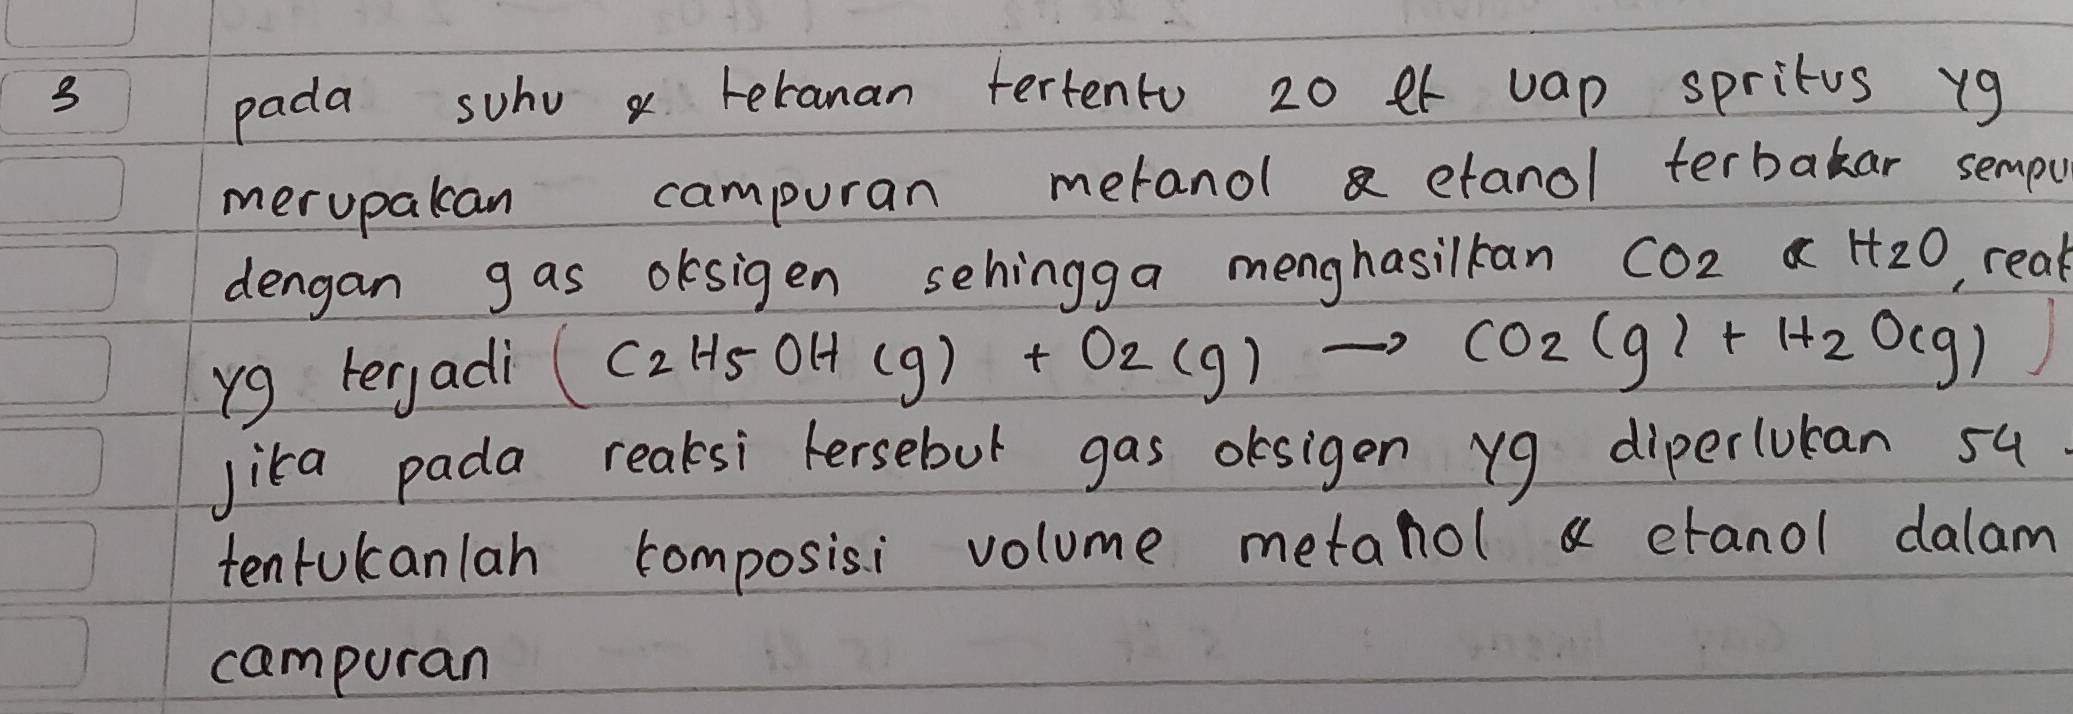 3 pada suhu & tekanan tertentu 20 lt uap spritus yg
merupakan campuran metanol & etanol terbakar sempu
dengan gas oksigen sehingga menghasilkan CO2 & H2O, reak
yg terjadi (C2H5OH (g) + O2 (g) → CO2 (g) + H2O(g))
jika pada reaksi tersebut gas oksigen yg diperlukan 54
tentukanlah komposisi volume metanol & etanol dalam
campuran